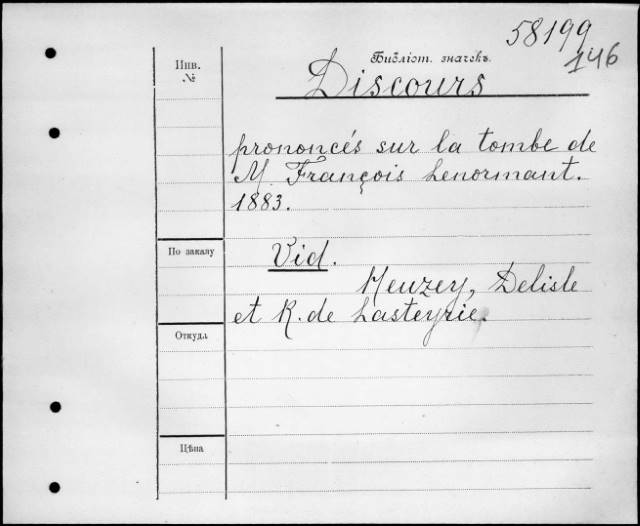 58199
146
Библіот. значекъ
Инв.
№
Discours
prononcés sur la tombe de
M. François Lenormant.
1883.
По заказу
Vid.
Heuzey, Delisle
et R. de Lasteyrie.
Откуда
Цѣна